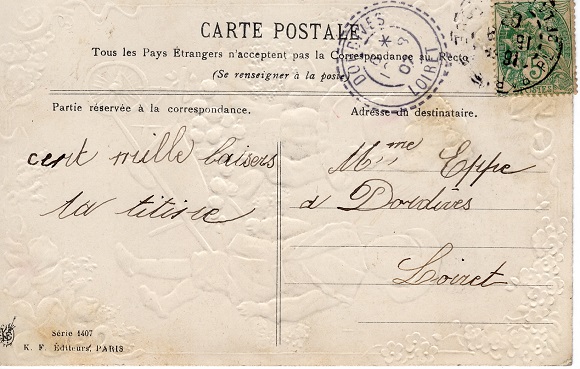 CARTE POSTALE
Tous les Pays Étrangers n'acceptent pas la Correspondance au Recto
(Se renseigner à la poste)
DORDIVES
LOIRET
Partie réservée à la correspondance.
Adresse du destinataire.
cent mille baisers
ta titine
Mme Eppe
a Dordives
Loiret
Série 1407
K. F. Éditeurs, PARIS